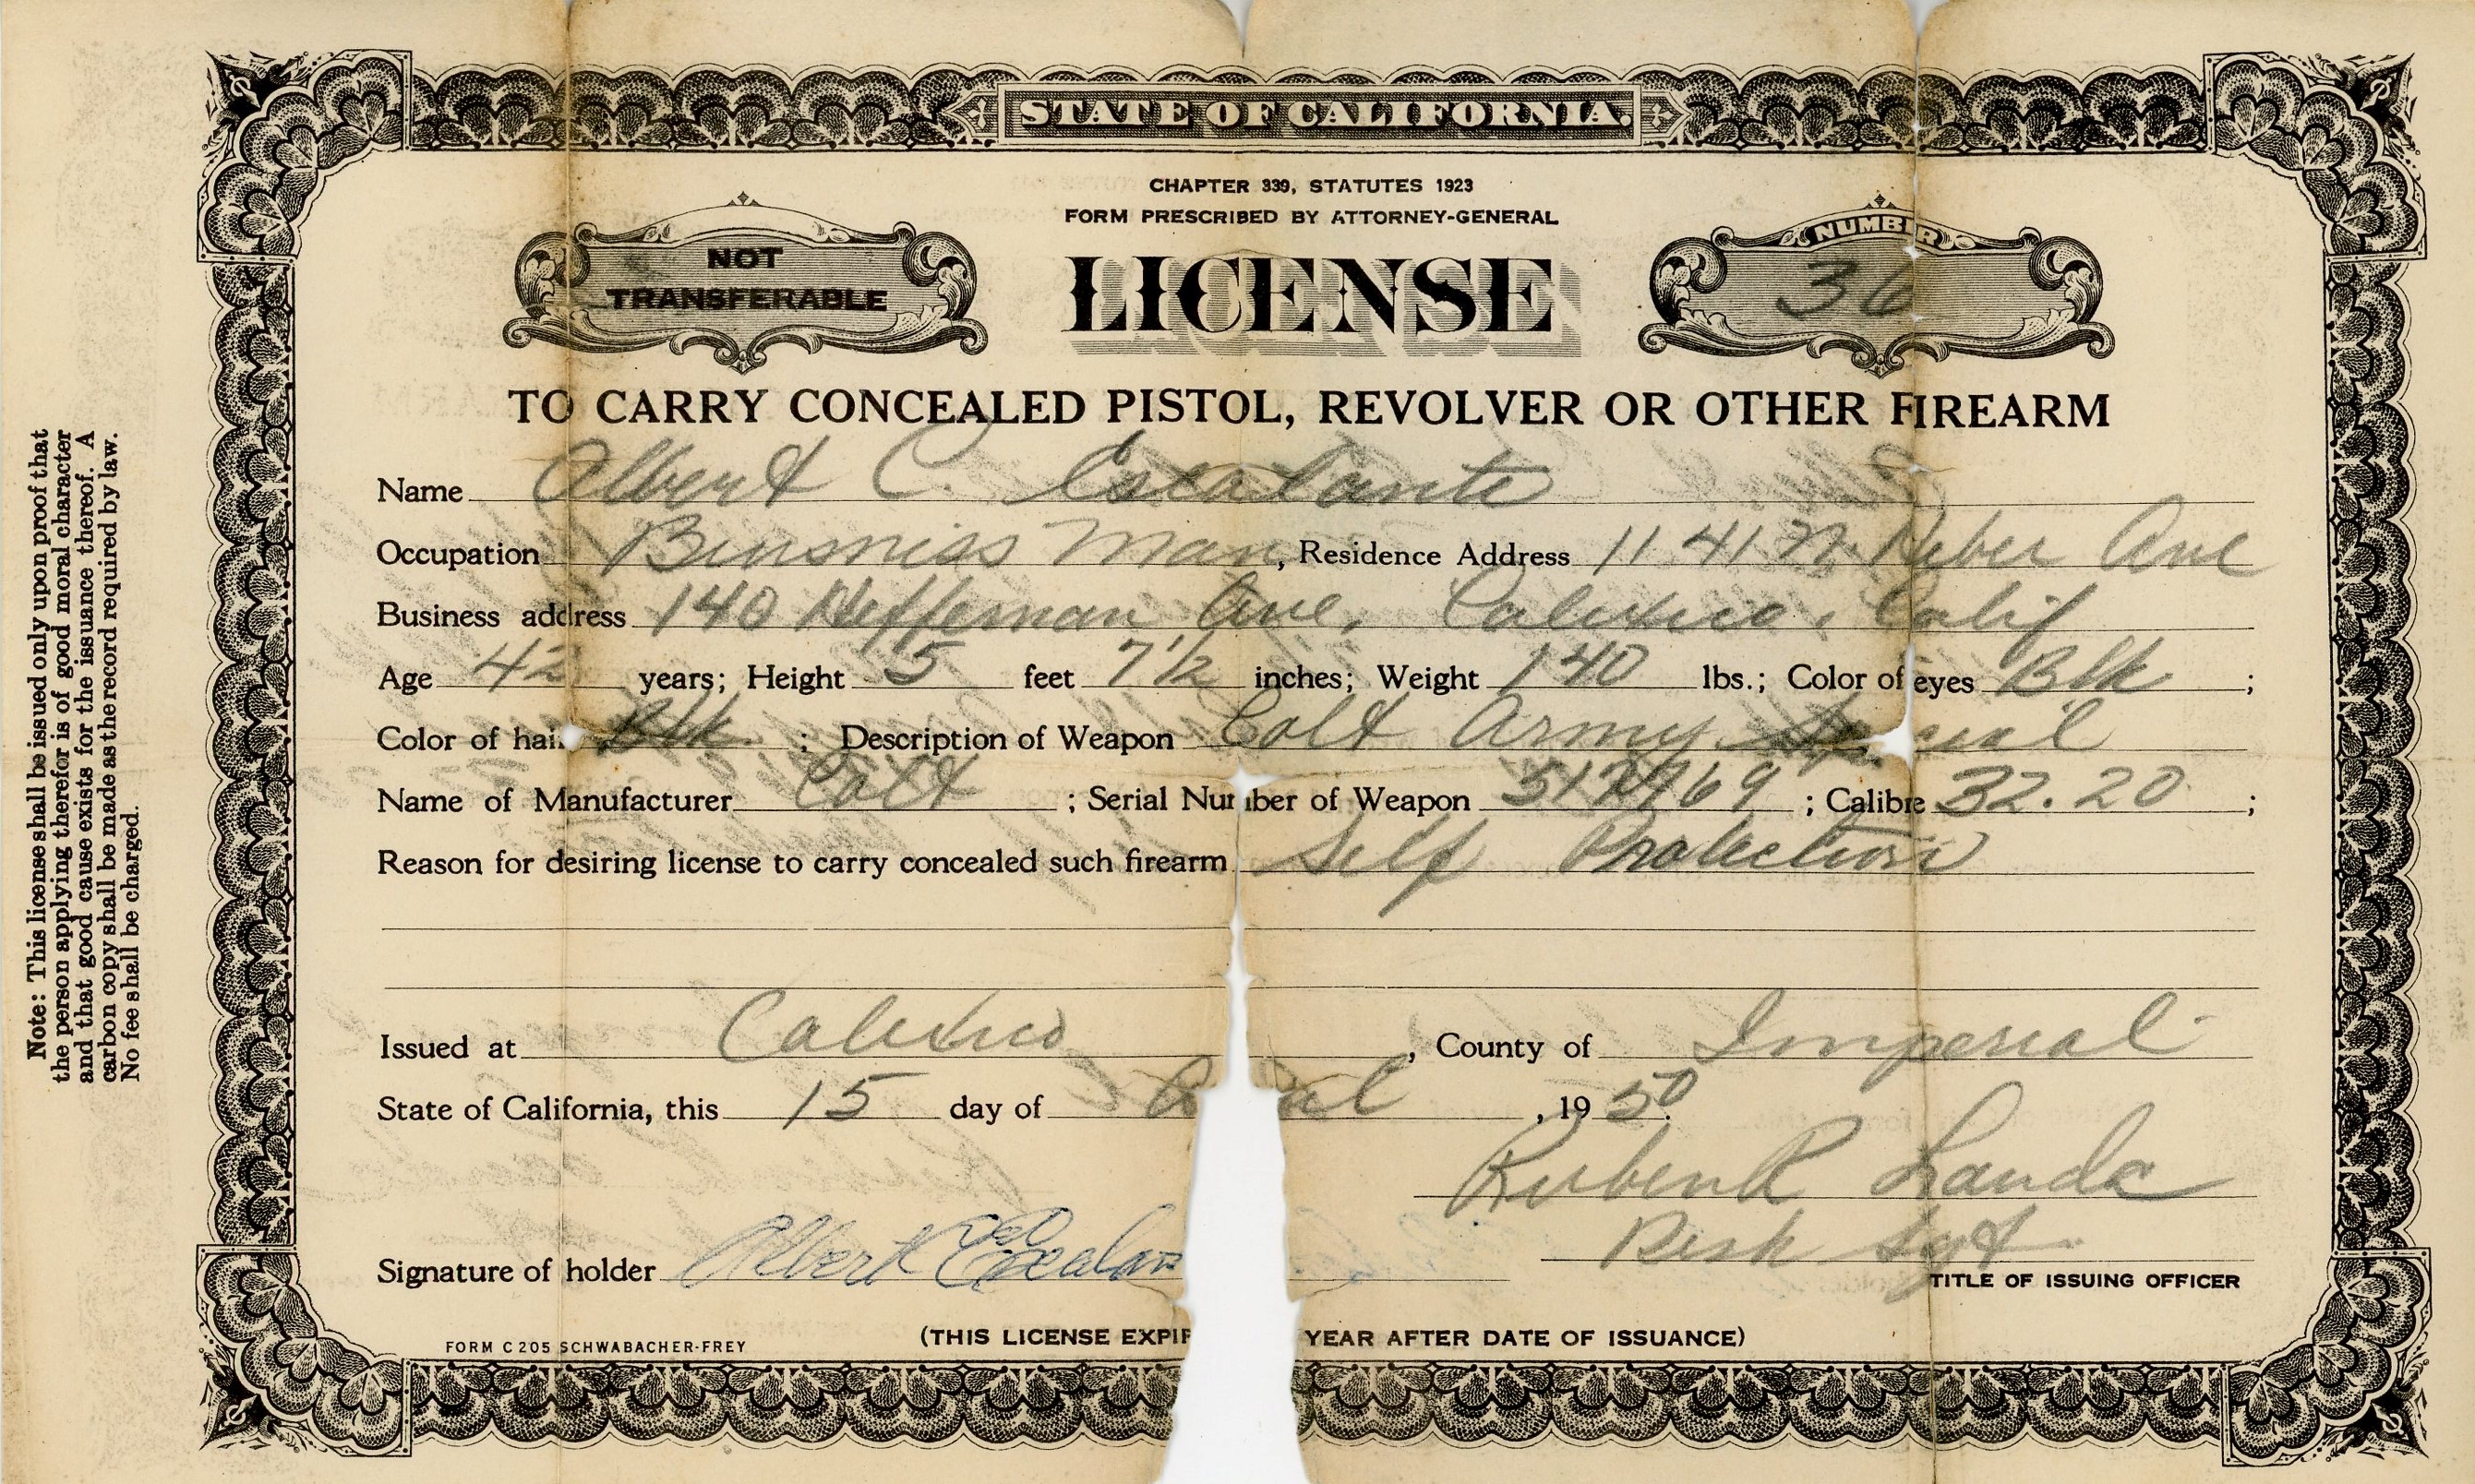 STATE OF CALIFORNIA.
CHAPTER 339, STATUTES 1923
FORM PRESCRIBED BY ATTORNEY-GENERAL
NOT TRANSFERABLE
LICENSE
NUMBER
36
TO CARRY CONCEALED PISTOL, REVOLVER OR OTHER FIREARM
Name Albert C. Escalante
Occupation Businiss Man, Residence Address 1141 N. Heber Ave
Business address 140 Heffernan Ave, Calexico, Calif
Age 42 years; Height 5 feet 7 1/2 inches; Weight 140 lbs.; Color of eyes Blk ;
Color of hair Blk. ; Description of Weapon Colt Army Special
Name of Manufacturer Colt ; Serial Number of Weapon ; Calibre 32.20 ;
Reason for desiring license to carry concealed such firearm Self Protection
Issued at Calexico, County of Imperial
State of California, this 15 day of , 19 50.
Ruben R Landa
Signature of holder Albert Escalan
Desk Sgt.
TITLE OF ISSUING OFFICER
(THIS LICENSE EXPIR YEAR AFTER DATE OF ISSUANCE)
FORM C 205 SCHWABACHER-FREY
Note: This license shall be issued only upon proof that
the person applying therefor is of good moral character
and that good cause exists for the issuance thereof. A
carbon copy shall be made as the record required by law.
No fee shall be charged.